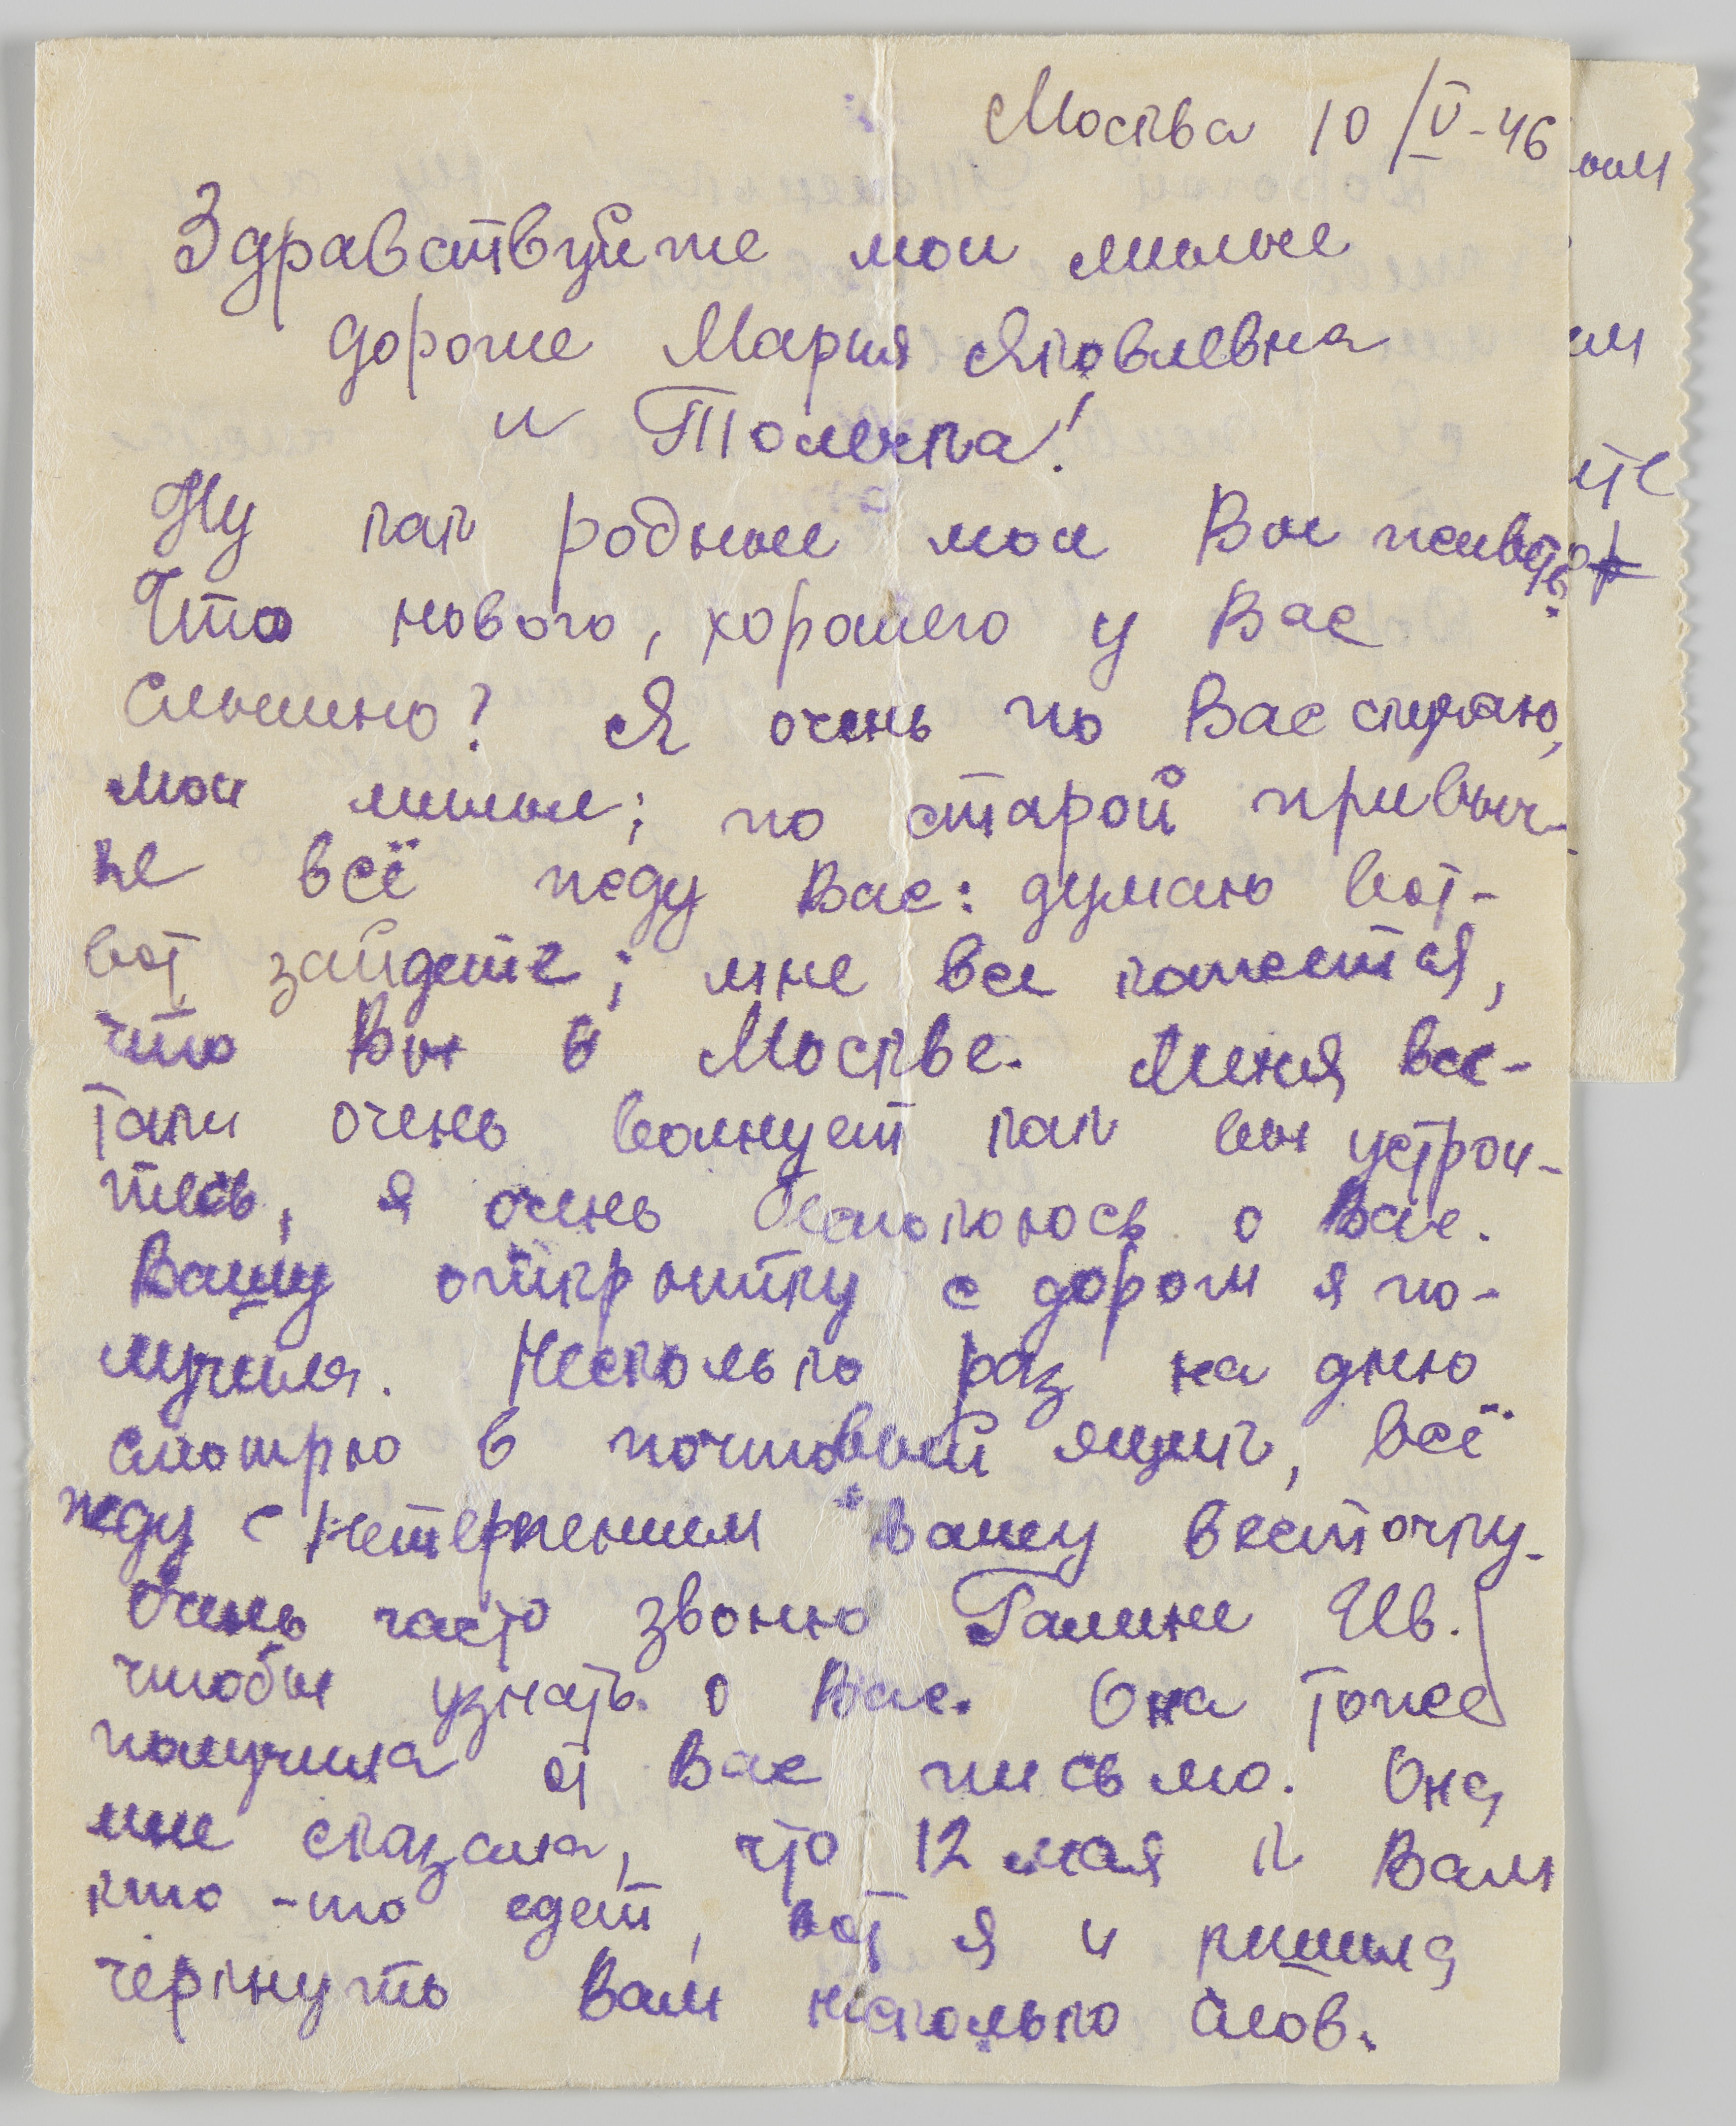 Москва 10/V-46
Здравствуйте мои милые
дорогие Мария Яковлевна
и Толечка!
Ну как родные мои Вы живете?
Что нового, хорошего у Вас
слышно? Я очень по Вас скучаю,
мои милые; по старой привыч-
ке всё жду Вас: думаю вот-
вот зайдете; мне все кажется,
что Вы в Москве. Меня все-
таки очень волнует как вы устрои-
тесь, я очень беспокоюсь о Вас.
Вашу открытку с дороги я по-
лучила. Несколько раз на дню
смотрю в почтовый ящик, всё
жду с нетерпением Вашу весточку.
Очень часто звоню Галине Ив.
чтобы узнать о Вас. Она тоже
получила от Вас письмо. Она
мне сказала, что 12 мая к Вам
кто-то едет, вот я и решила
черкнуть Вам несколько слов.